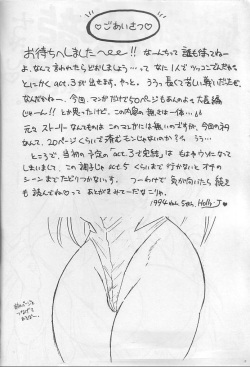 ♡ごあいさつ♡
お待ちへしましたへeee!! なーんって 誰も待ってねー
よ、なんて言われたらどおしましょう…って なに1人で つっこんでんだか
とにかく act.3 が出ます。やっと。ううっ 長くて苦しい戦いだった
なんだかねー、今回、マンガだけで50ページもあんのよっ 大長編
じゃーん!! とか思ったけど、この内容の無さは一体…
元々ストーリーなんてものは このマンガには無いのですが、今回の
なんて、20ページくらいで済むモンじゃないのか?
ところで、当初の予定の「act.3で完結」は もはやウソになって
しまいまして この調子じゃ act.5 くらいまで行かないと オチの
シーンまでたどりつかないっす。つーわけで 気が向いたら続き
も読んでね♡って あとがきみてーだな こりゃ。
1994 Holly-J